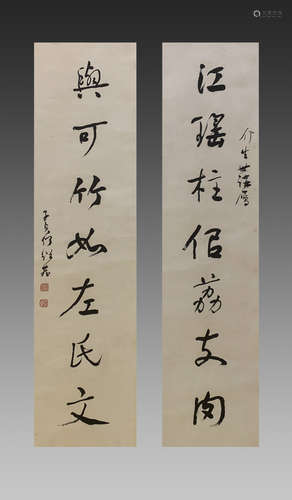 江瑤柱侶荔支肉
介生世講屬
與可竹如左氏文
子貞何紹基